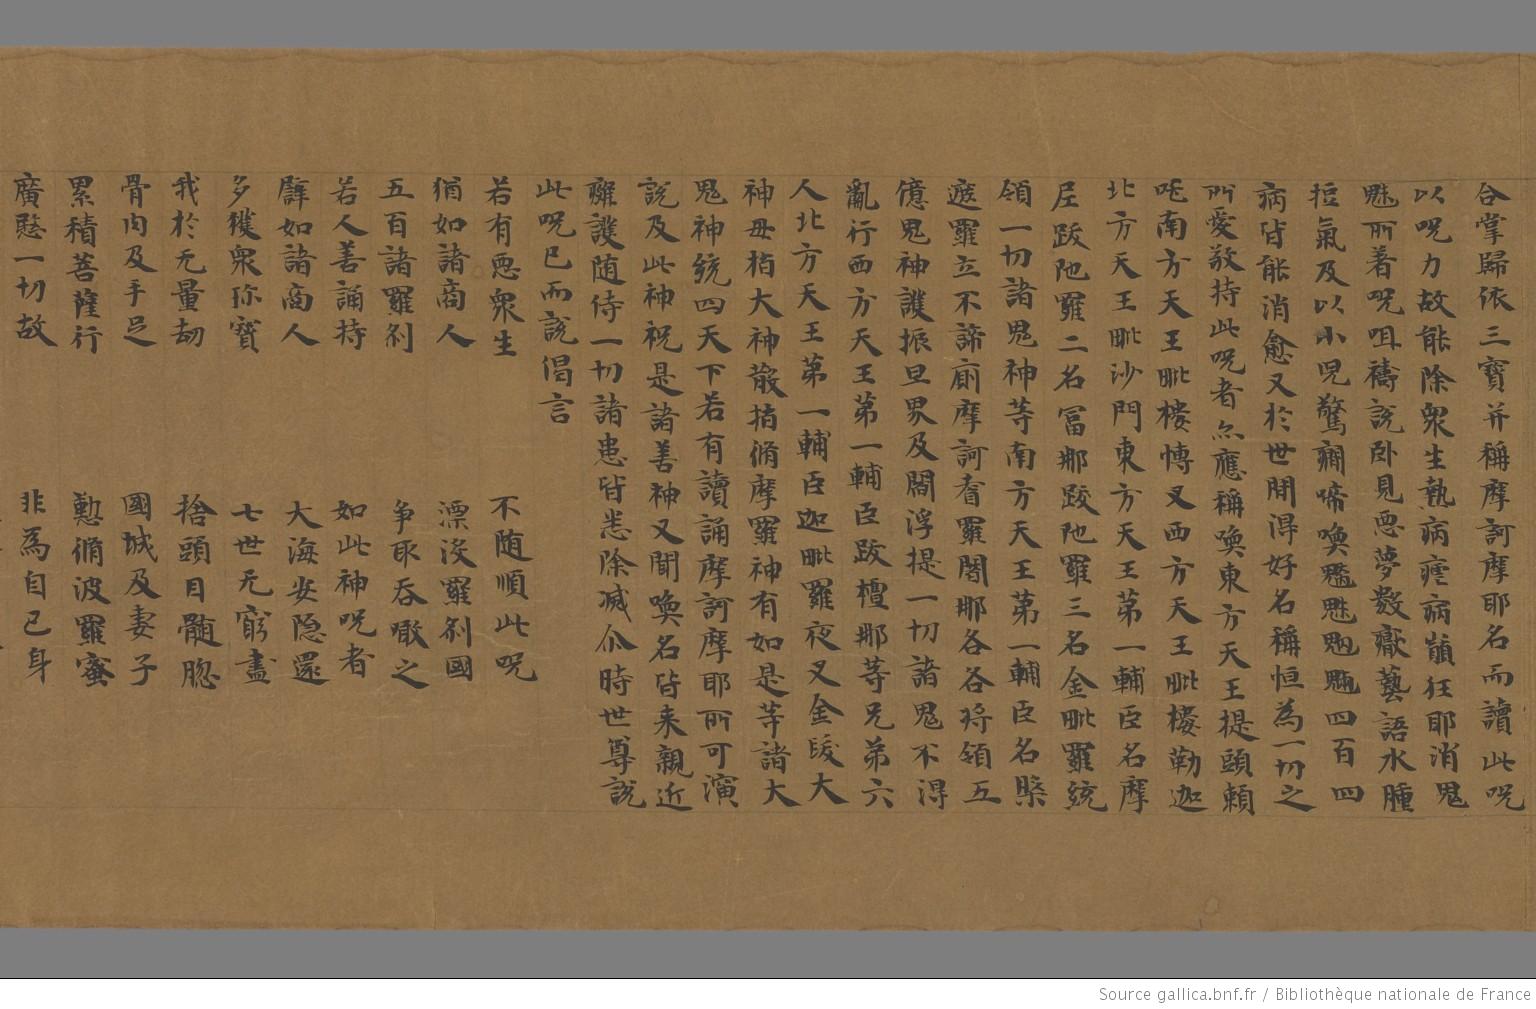 合掌歸依三寶并稱摩訶摩耶名而讀此呪
以呪力故能除衆生熱病瘧病顚狂耶消鬼
魅所著呪咀禱説卧見惡夢數猒藝語水腫
短氣及以小兒驚癎啼喚魑魅魍魎四百四
病皆能消愈又於世間得好名稱恒為一切之
所愛敬持此呪者亦應稱喚東方天王提頭頼
吒南方天王毗樓博叉西方天王毗樓勒迦
北方天王毗沙門東方天王第一輔臣名摩
尼跋陁羅二名冨那跋陁羅三名金毗羅統
領一切諸鬼神等南方天王第一輔臣名槃
遮羅立不諦廁摩訶耆羅闍那各各將領五
億鬼神護振旦界及閻浮提一切諸鬼不得
亂行西方天王第一輔臣跋檀那等兄弟六
人北方天王第一輔臣迦毗羅夜叉金䟦大
神母指大神散指脩摩羅神有如是等諸大
鬼神統四天下若有讀誦摩訶摩耶所可演
説及此神祝是諸善神又聞喚名皆来親近
擁護随侍一切諸患皆悉除滅尒時世尊説
此呪已而説偈言
若有惡衆生 不随順此呪
猶如諸商人 漂没羅刹國
五百諸羅刹 争取吞噉之
若人善誦持 如此神呪者
譬如諸商人 大海安隐還
多獲衆珎寶 七世无窮盡
我於无量劫 捨頭目髄腦
骨肉及手足 國城及妻子
累積菩薩行 懃脩波羅蜜
廣愍一切故 非為自己身
Source gallica.bnf.fr / Bibliothèque nationale de France